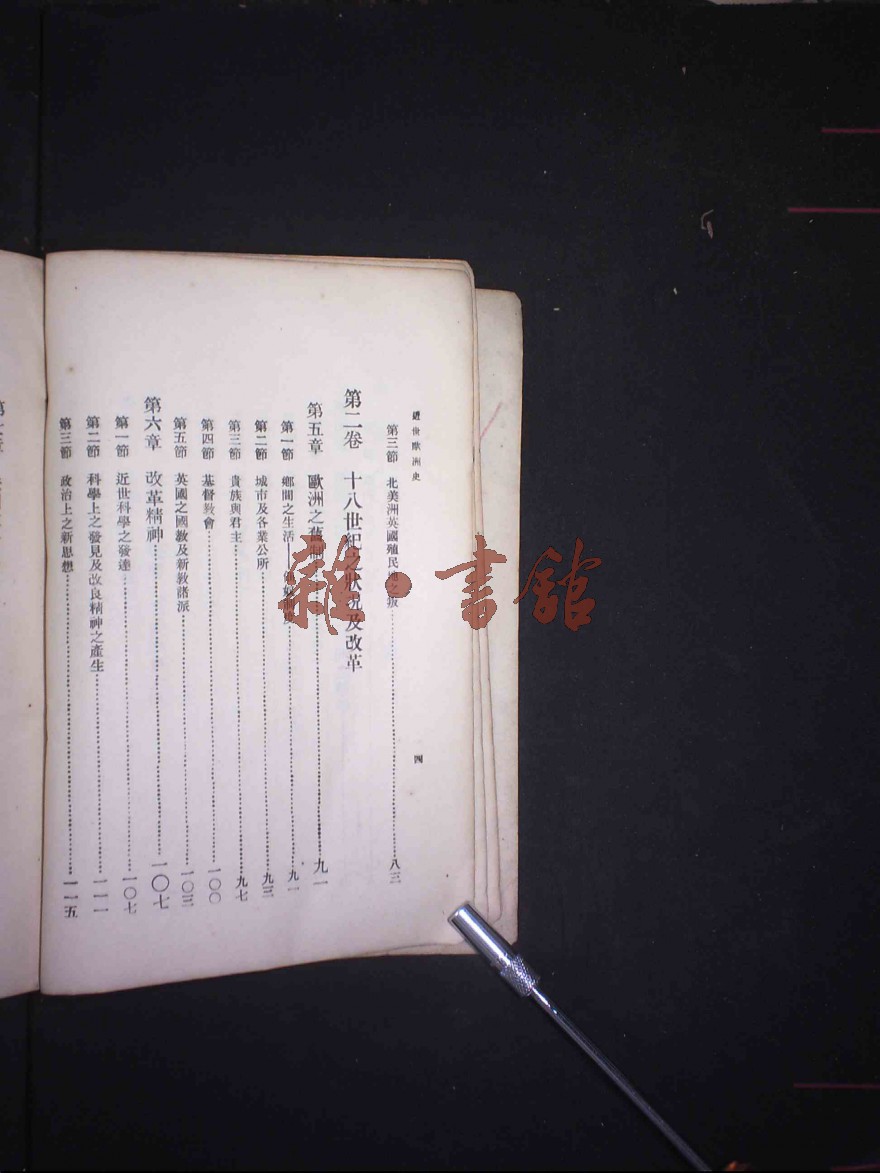 近世歐洲史
四
第三節 北美洲英國殖民地之叛 八三
第二卷 十八世紀之狀況及改革
第五章 歐洲之舊制 九一
第一節 鄉間之生活—— 九一
第二節 城市及各業公所 九三
第三節 貴族與君主 九七
第四節 基督教會 一〇〇
第五節 英國之國教及新教諸派 一〇三
第六章 改革精神 一〇七
第一節 近世科學之發達 一〇七
第二節 科學上之發見及改良精神之產生 一一一
第三節 政治上之新思想 一一五
雜·書館